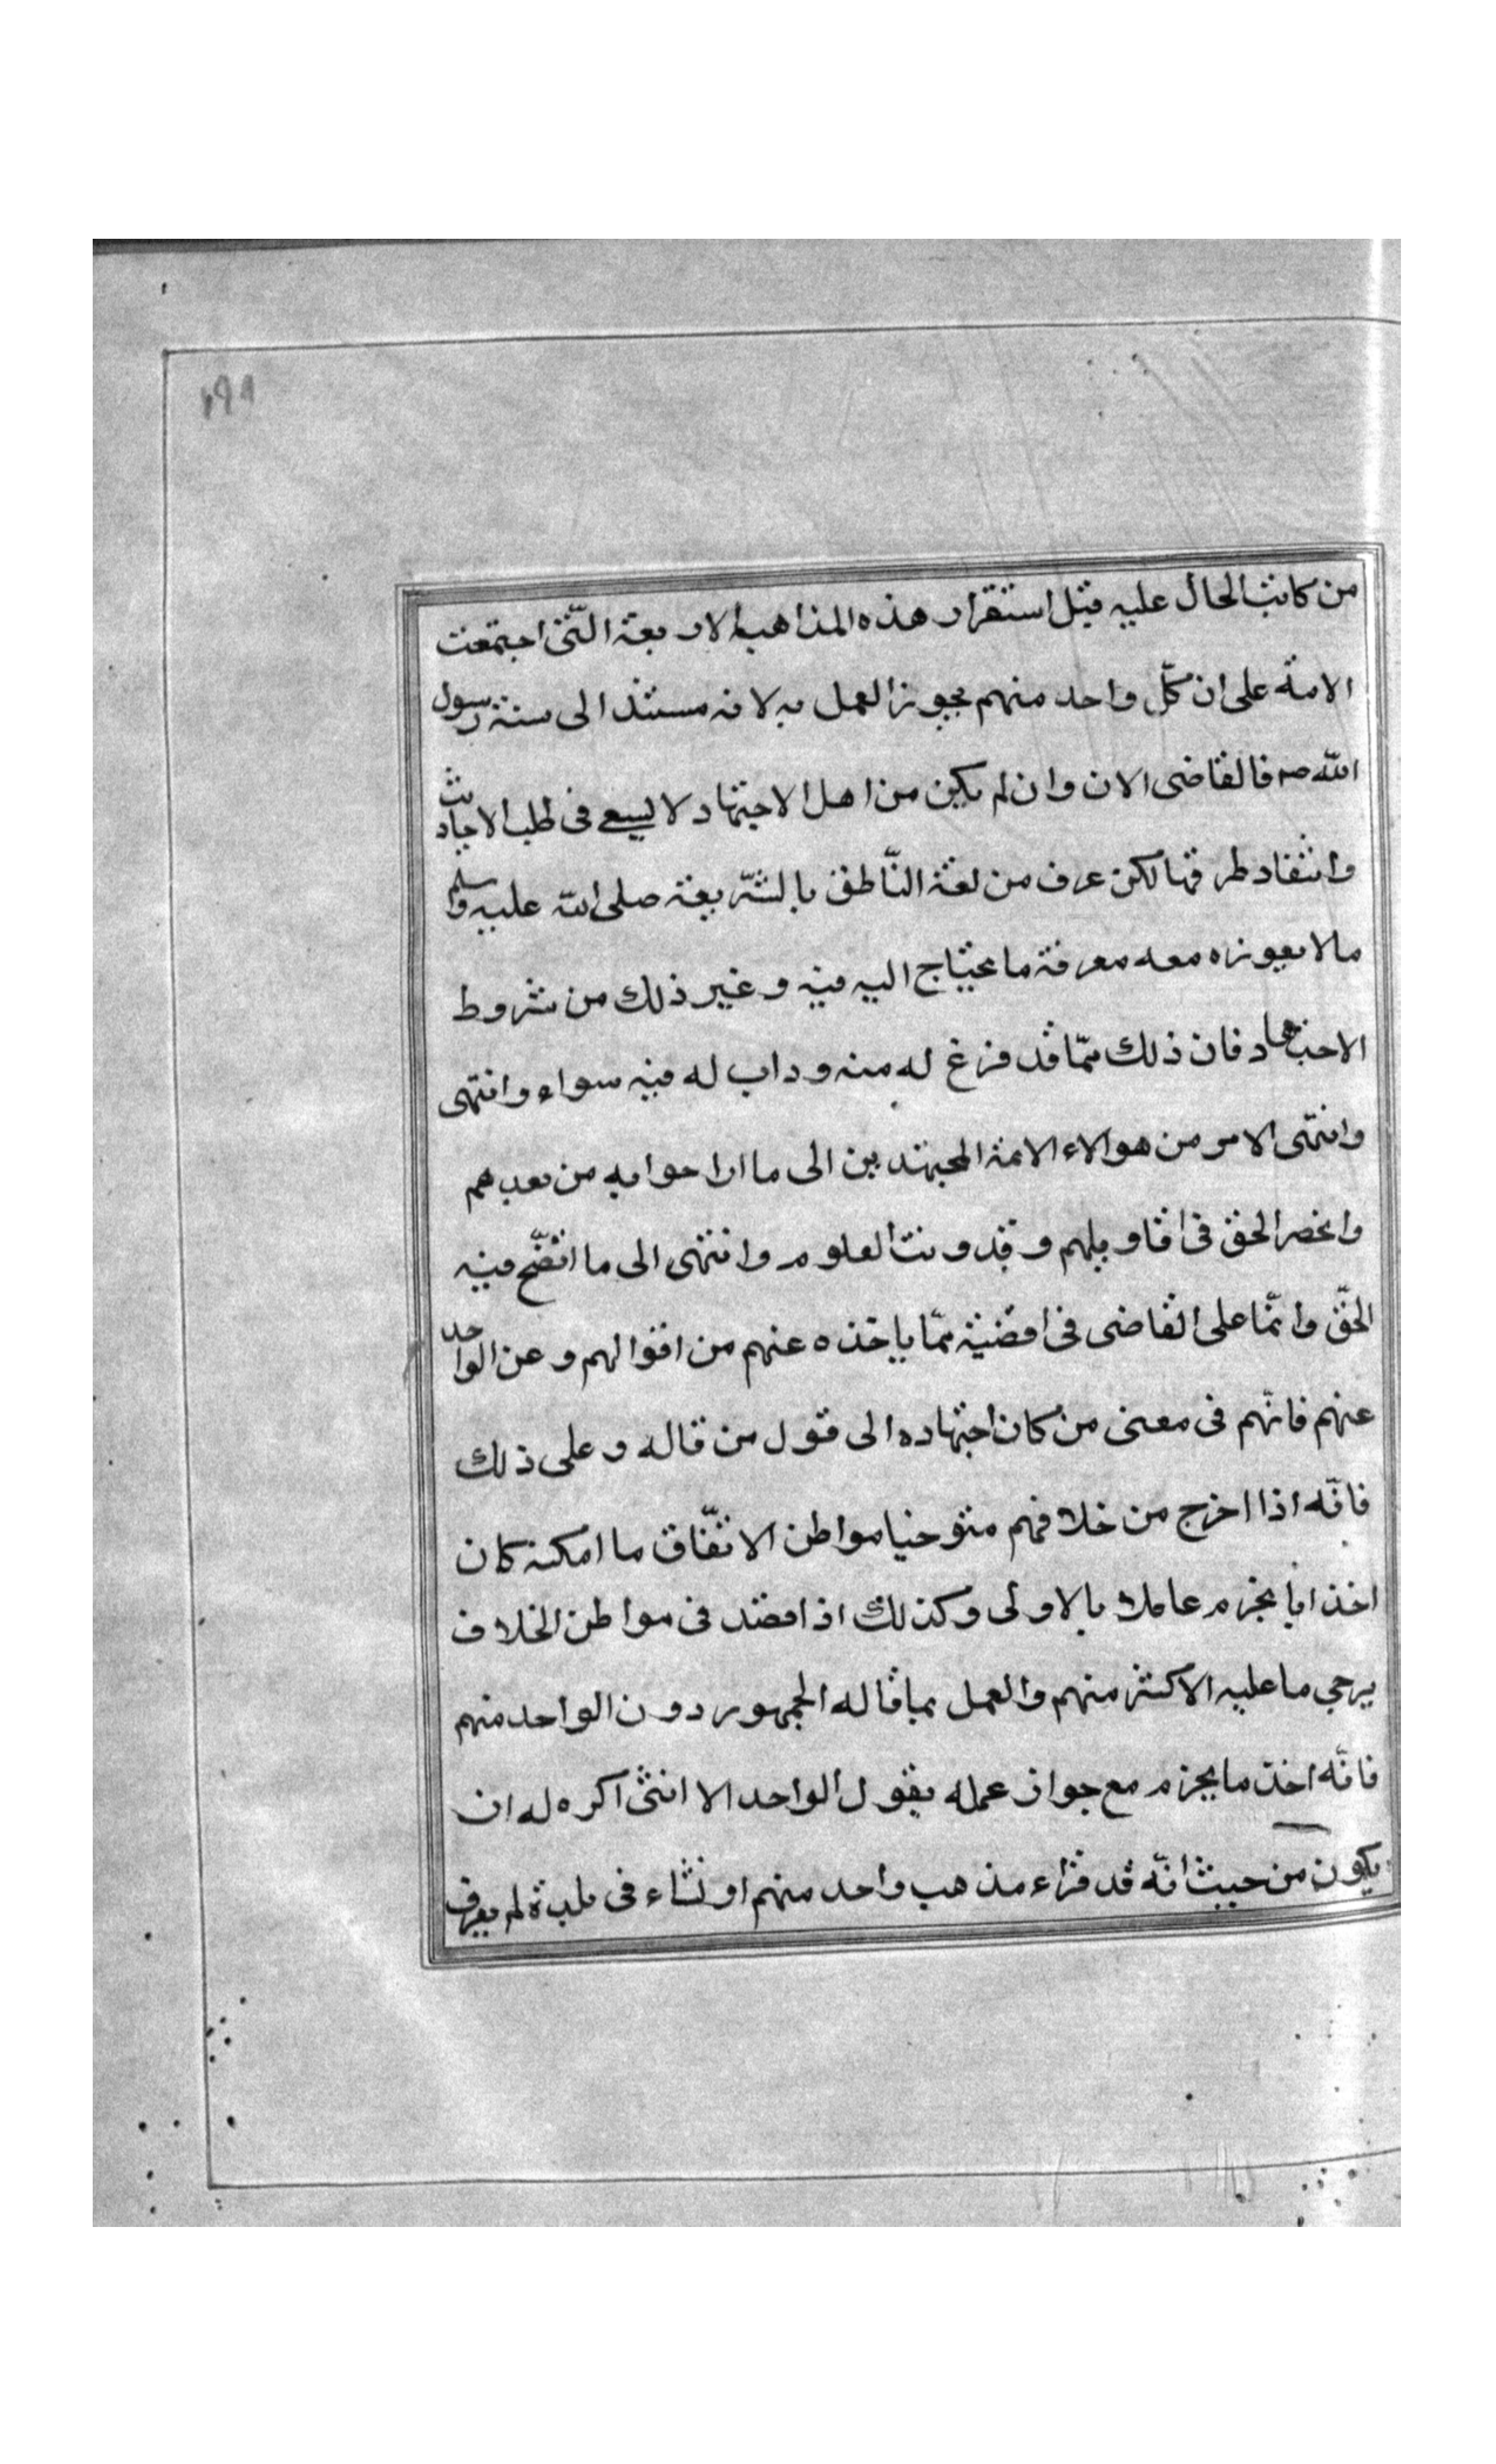 ١٩٨
من كانت الحال عليه قبل استقرار هذه المذاهب الاربعة التى اجتمعت
الامة على ان كل واحد منهم يجوز العمل به لانه مستند الى سنة رسول
الله صم فالقاضى الان وان لم يكن من اهل الاجتهاد لا ليسعى فى طلب الاحاديث
وانتقاد طرقها لكن عرف من لغة النّاطق بالشّريعة صلى الله عليه وسلم
مالا يعوزه معه معرفة ما يحتاج اليه فيه و غير ذلك من شروط
الاجتهاد فان ذلك ممّا قد فرغ له منه وداب له فيه سواه وانتهى
وانتهى الامر من هوالاء الائمة المجتهدين الى ما اراحوا به من بعدهم
وانحصر الحق فى اقاويلهم وقد دونت العلوم وانتهى الى ما اتّضح فيه
الحقّ وانّما على القاضى فى اقضيته ممّا ياخذه عنهم من اقوالهم و عن الواحد
عنهم فانّهم فى معنى من كان اجتهاده الى قول من قاله و على ذلك
فانّه اذا اخرج من خلافهم متوخيا مواطن الاتّفاق ما امكنه كان
اخذا بالحزم عاملا بالاولى وكذلك اذا قصد فى مواطن الخلاف
يرحى ما عليه الاكثر منهم والعمل بما قاله الجمهور دون الواحد منهم
فانّه اخذ ما يحزم مع جواز عمله بقول الواحد الا انّنى اكره له ان
يكون من حيث انّه قد قراء مذهب واحد منهم او نشاء فى بلدة لم يعرف